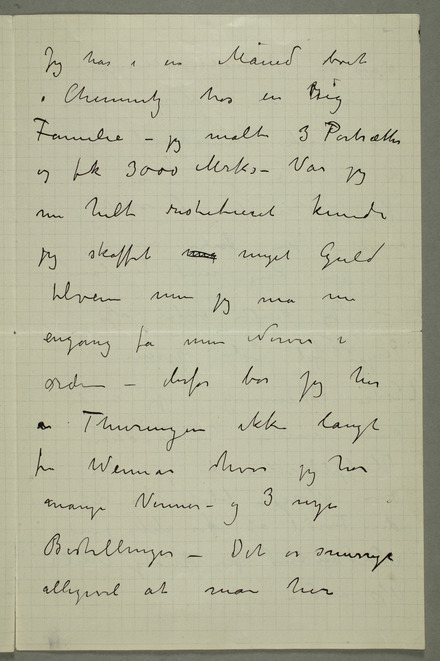 Jeg har i en Måned boet
i Chemnitz hos en rig
Familie – jeg malte 3 Portrætter
og fik 3000 Mrks – Var jeg
nu helt restitueret kunde
jeg skaffet meget Guld
tilveie men jeg må nu
engang få mine Nerver i
orden – derfor bor jeg her
i Thüringen ikke langt
fra Weimar hvor jeg har
mange Venner – og 3 nye
Bestillinger – Det er snurrigt
alligevel at man her